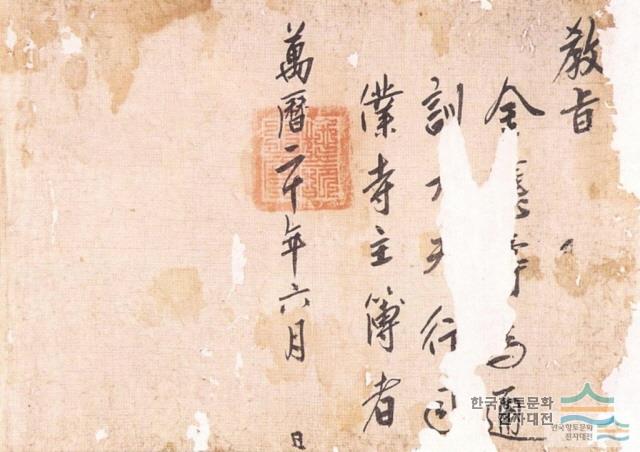 教旨
金 爲通
訓大夫行司
僕寺主簿者
萬曆二十年六月 日
한국향토문화
전자대전
한국향토문화
전자대전